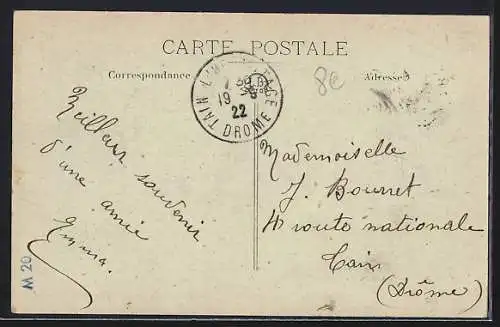 CARTE POSTALE
Correspondance
Adresse
8€
TAIN L'HERMITAGE
19 9
22
DROME
Meilleur souvenir
d'une amie
Emma.
Mademoiselle
J. Bourret
4 route nationale
Tain
(Drôme)
M 20